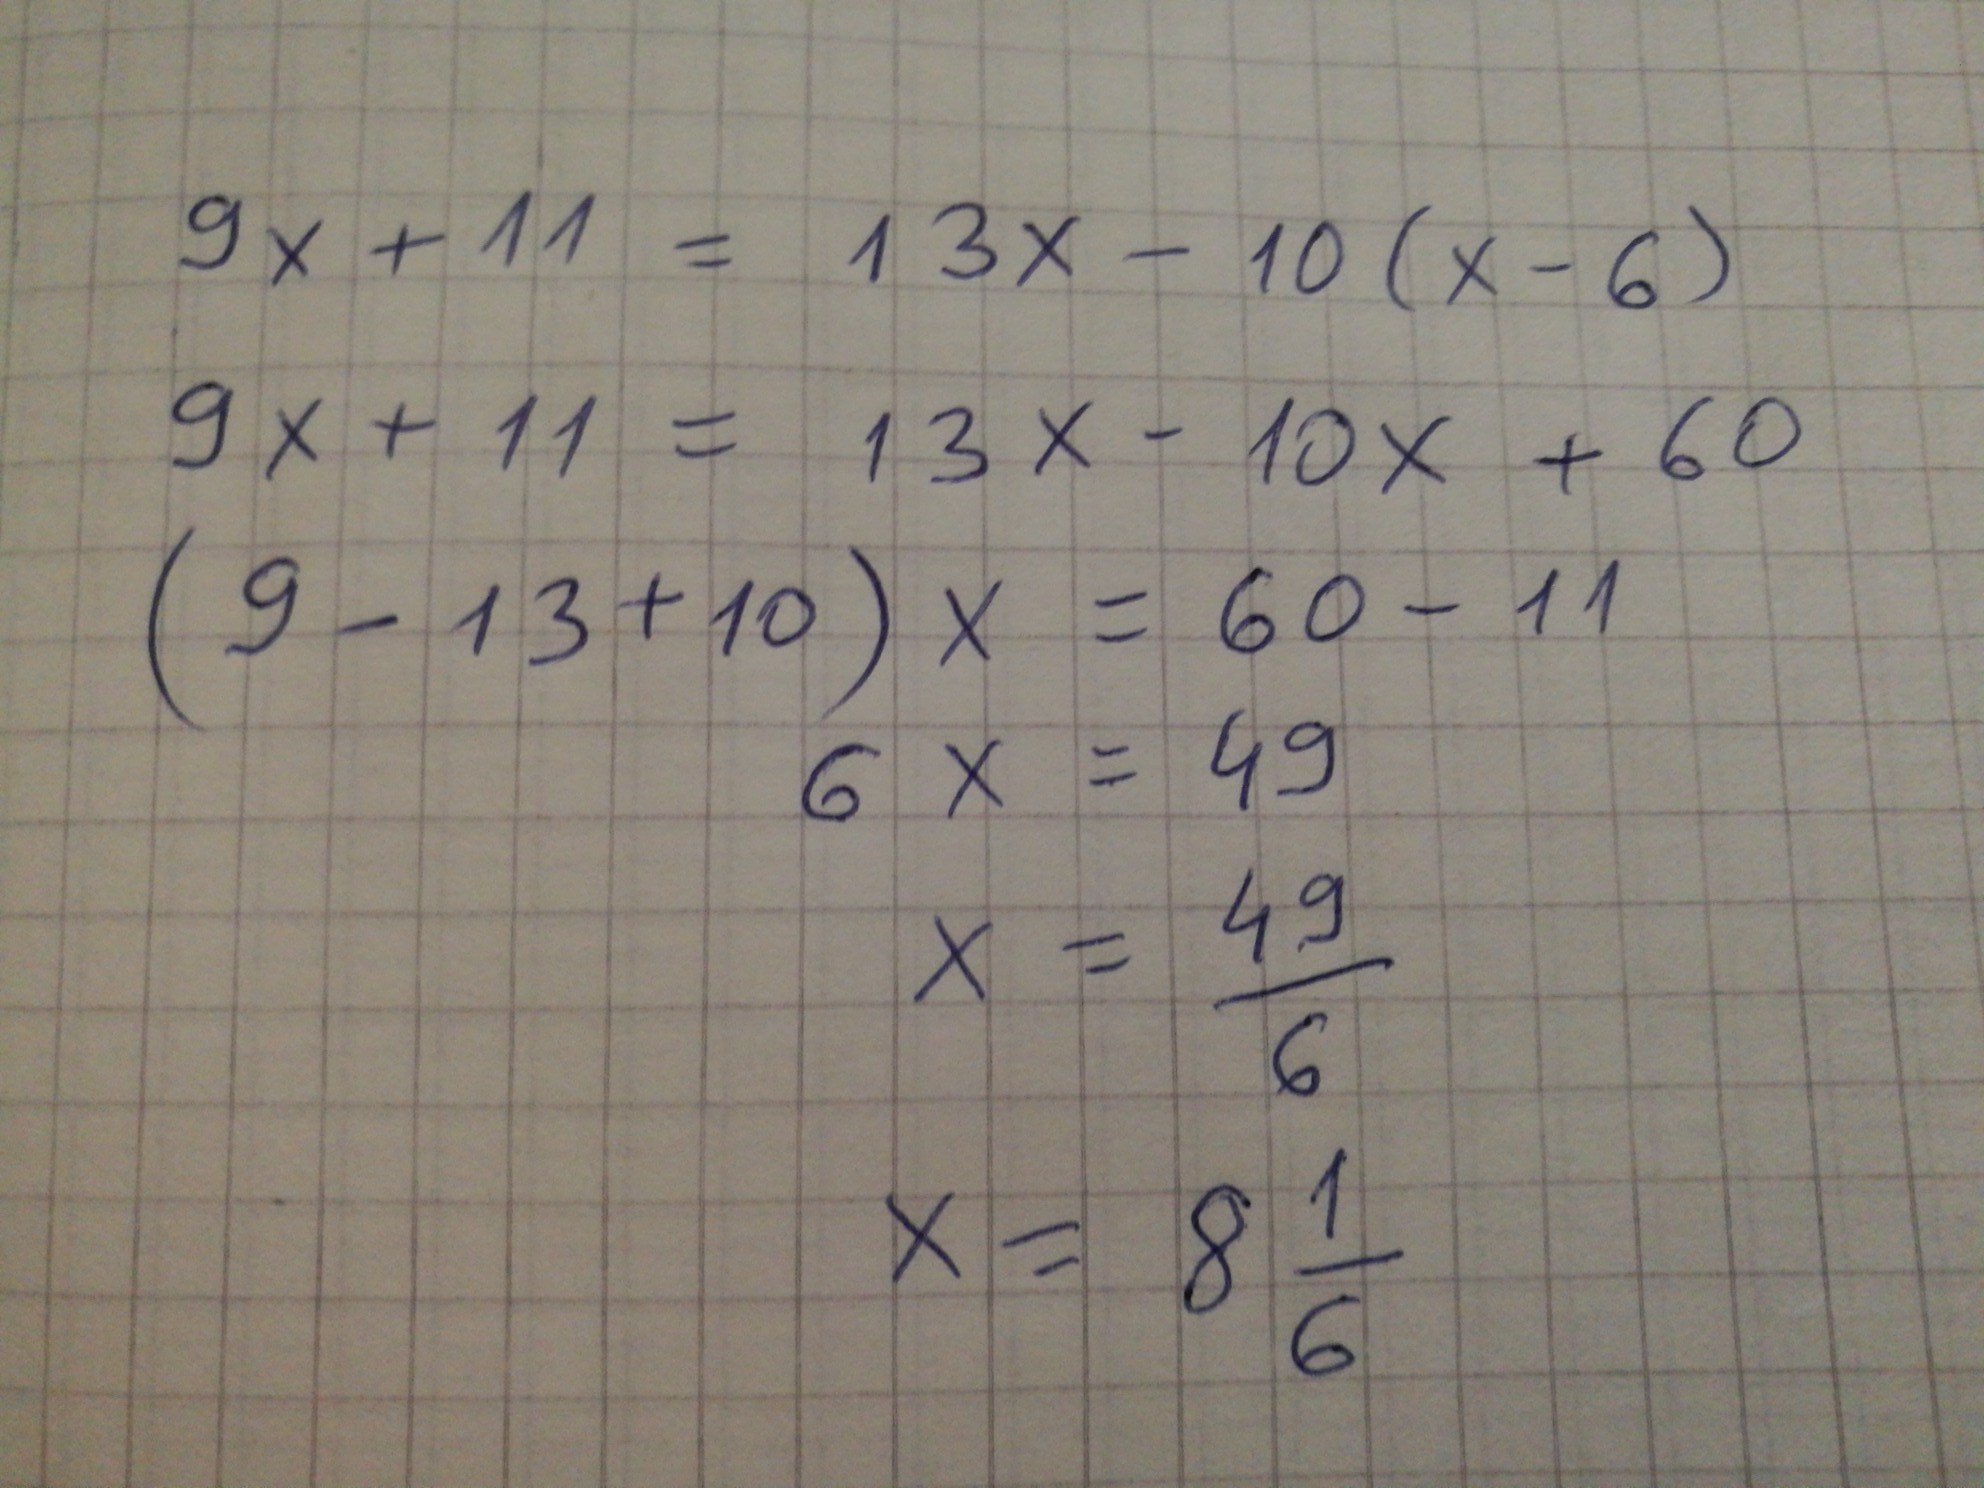 9x + 11 = 13x - 10(x - 6)
9x + 11 = 13x - 10x + 60
(9 - 13 + 10) x = 60 - 11
6 x = 49
x = 49/6
x = 8 1/6